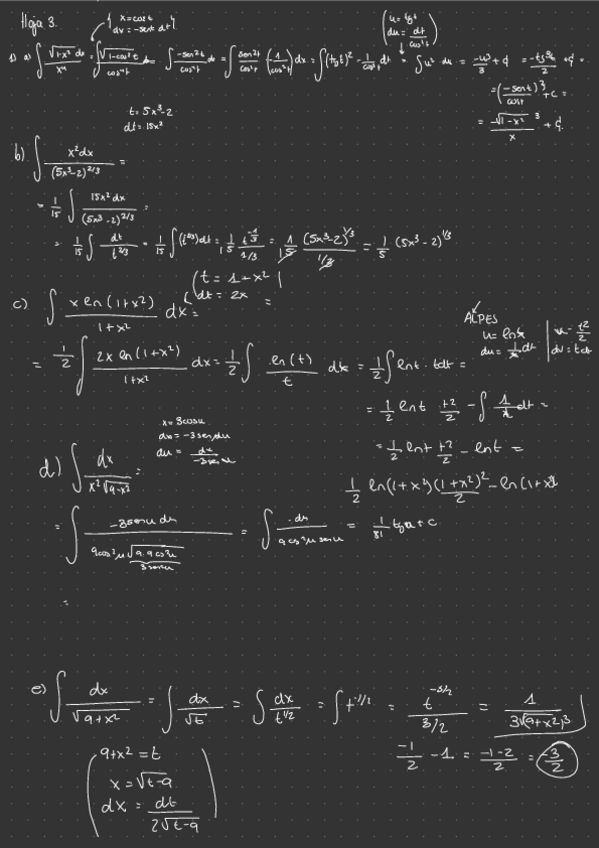 Hoja 3.
{ x = cos t
dx = -sen t dt }
1) a) ∫ √(1-x²)/x⁴ dx = ∫ √(1-cos² t)/cos⁴t = ∫ -sen²t/cos⁴t dt = ∫ sen²t/cos²t · (1/cos²t) dx = ∫ (tg t)² · 1/cos²t dt = ∫ u² du = -u³/3 + C
( u = tg t
du = dt/cos²t )
= (-sen t/cos t)³ + C =
= -√(1-x²)³/x + C
t = 5x³-2
dt = 15x²
b) ∫ x² dx/(5x³-2)^(2/3) =
= 1/15 ∫ 15x² dx/(5x³-2)^(2/3) =
= 1/15 ∫ dt/t^(2/3) = 1/15 ∫ (t^(2/3)) dt = = 1/15 (5x³-2)^(1/3)/(1/3) = 1/5 (5x³-2)^(1/3)
c) ∫ x ln(1+x²)/(1+x²) dx =
( t = 1+x²
dt = 2x
= 1/2 ∫ 2x ln(1+x²)/(1+x²) dx = 1/2 ∫ ln(t)/t dt = 1/2 ∫ ln t · t dt =
ALPES
= 1/2 ln t t²/2 - ∫ dt =
= 1/2 ln t t²/2 - ln t =
1/2 ln(1+x²)(1+x²)²/2 - ln(1+x²)
x = 3cos u
dx = -3 sen u du
du = dx/-3 sen u
d) ∫ dx/(x²√(9-x²)) =
= ∫ -3 sen u du/(9cos²u √(9-9cos²u)) = ∫ du/(9cos²u sen u) = 1/81 tg u + C
3 sen u
=
e) ∫ dx/√(9+x²) = ∫ dx/√t = ∫ dx/t^(1/2) = ∫ t^(-1/2) = t^(-3/2)/(3/2) = 1/(3√(9+x²)³)
-1/2 - 1 = (-1-2)/2 = -3/2
( 9+x² = t
x = √(t-9)
dx = dt/(2√(t-9)) )